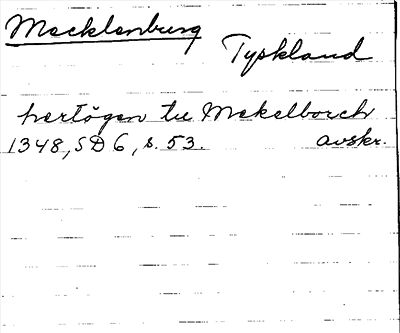 Mecklenburg
Tyskland
hertogen tu Mekelborch
1348, SD 6, s. 53. avskr.